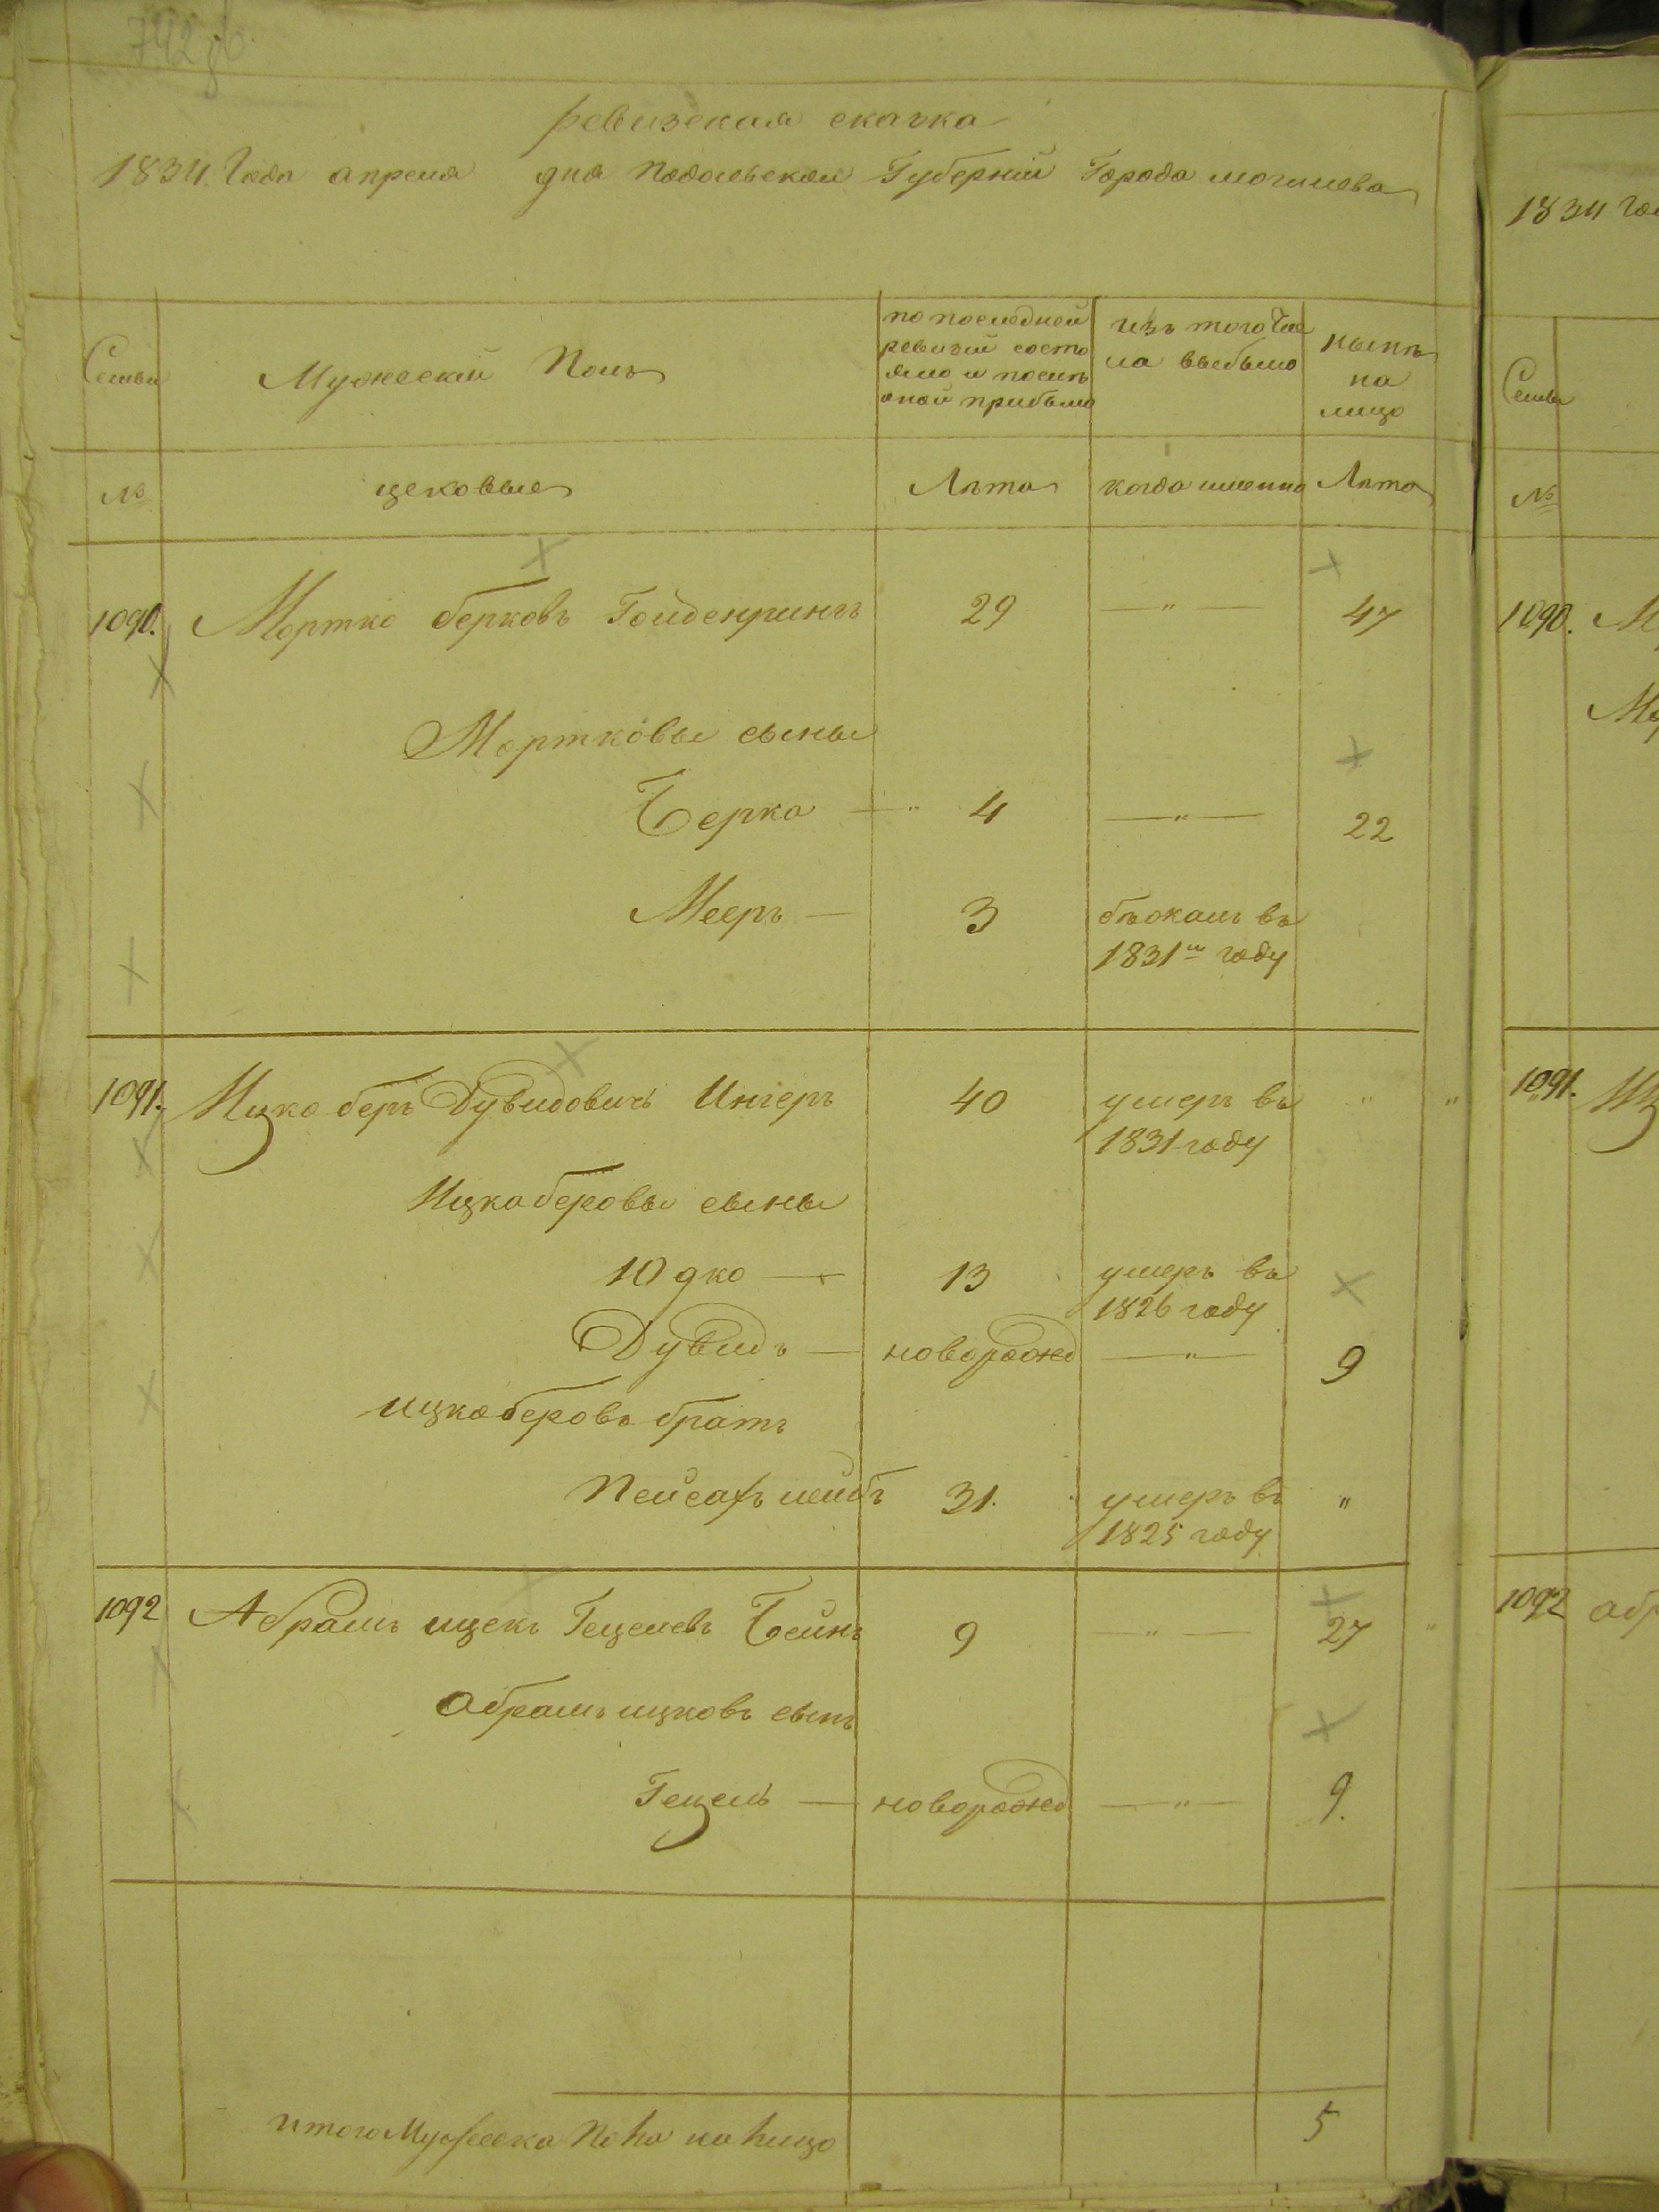 742 об.
ревизская сказка
1834 Года апреля дня Подольской Губернии Города могилева
Семьи
Мужеский Полъ
по последней
ревизии состо
яло и послѣ
оной прибыло
изъ того Чис
ла выбыло
нынѣ
на
лицо
№
цеховые
Лѣта
когда именно
Лѣта
1090. Мортко берковъ Гойденрингъ 29 — " — 47
Мортковы сыны
Берко — " 4 — " — 22
Мееръ — 3 бѣжалъ въ
1831м году
1091. Ицко беръ Дувидовичъ Ингеръ 40 умеръ въ " "
1831 году
Ицкоберовы сыны
Юдко — 13 умеръ въ
1826 году
Дувидъ — новорожд — " — 9
ицкоберовъ братъ
Пейсахъ лейбъ 31. умеръ въ "
1825 году
1092 Абрамъ ицекъ Гецелевъ Бейнъ 9 — " — 27 "
Абрамъ ицковъ сынъ
Гецель — новорожд — " — 9.
итого Мужеска Пола на лицо 5
1834 Год
Семьи
№
1090. М
Мо
1091. Иц
1092 абр